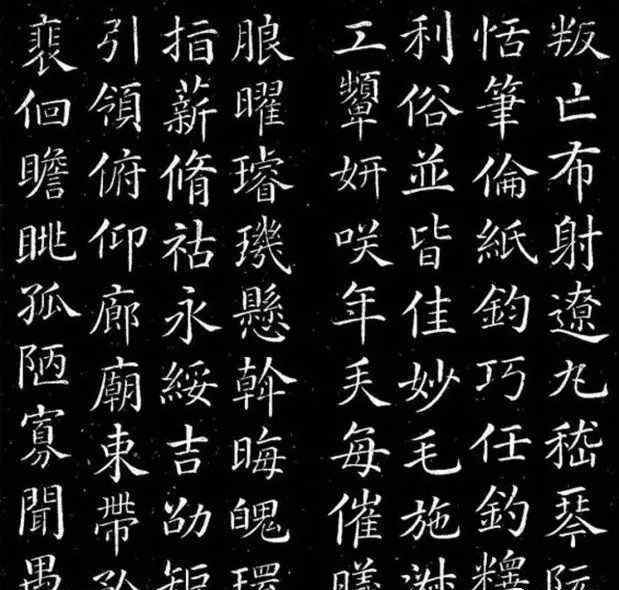 叛亡布射遼丸嵇琴阮
恬筆倫紙鈞巧任釣
利俗並皆佳妙毛施淑
工顰妍咲年矢每催曦
朖曜璿璣懸斡晦魄環
指薪脩祜永綏吉劭矩
引領俯仰廊廟束帶矜
裵佪瞻眺孤陋寡聞愚